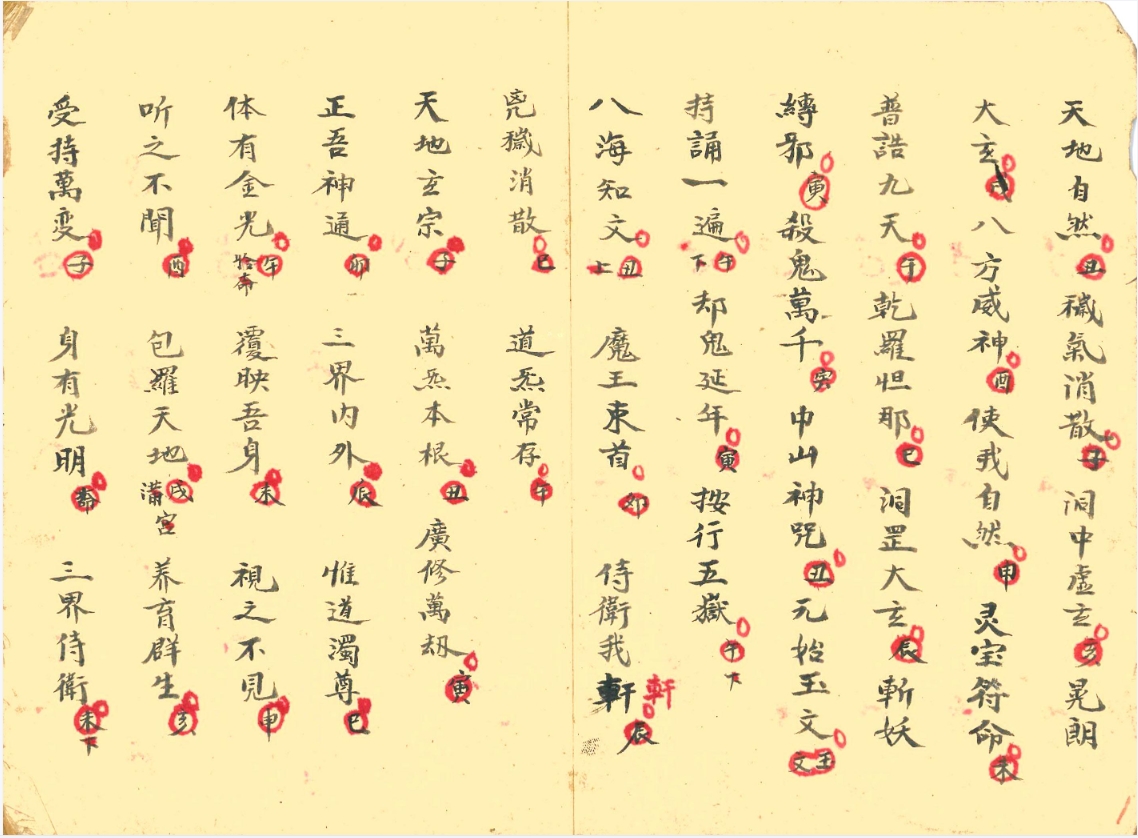 天地自然丑穢氣消散子洞中虛玄亥晃朗
大玄八方威神酉使我自然申灵宝符命未
普誥九天午乾羅怛那巳洞罡大玄辰斬妖
縛邪寅殺鬼萬千中山神咒丑元始玉文玉文
持誦一遍午下却鬼延年寅按行五嶽午下
八海知文丑上魔王束首卯侍衛我軒軒辰
兇穢消散巳道炁常存午
天地玄宗子萬炁本根丑廣修萬劫寅
正吾神通卯三界内外辰惟道濁尊巳
体有金光午覆映吾身未視之不見申
听之不聞酉包羅天地戌满宫养育群生亥
受持萬变子身有光明斋三界侍衛未下